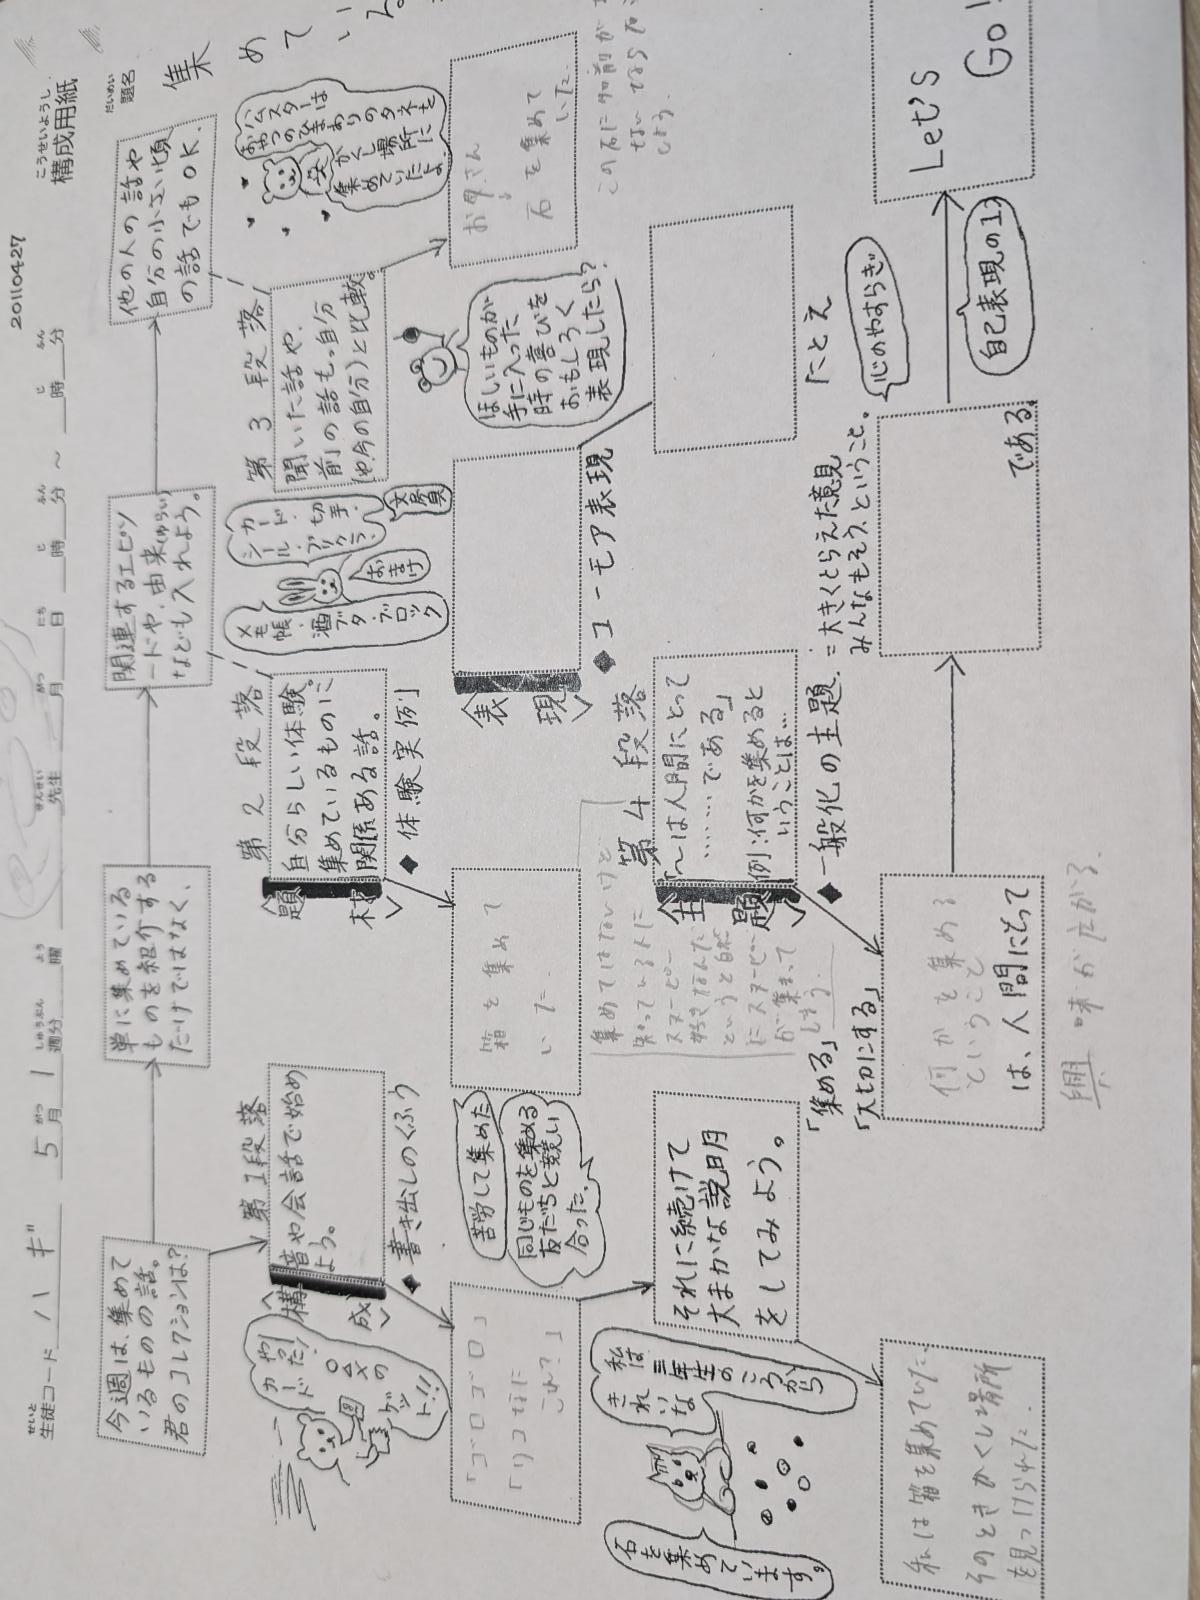 構成用紙
こうせいようし
20110427
生徒コード ハギ 5月1週分 曜 先生 月 日 時 分 ～ 時 分
せいと がつ しゅうぶん よう せんせい がつ にち じ ふん じ ふん
題名
だいめい
集めてい
今週は、集めて
いるものの話。
君のコレクションは?
単に集めている
ものを紹介する
だけではなく、
関連するエピソ
ードや、由来(ゆらい)
なども入れよう。
他の人の話や
自分の小さい頃
の話でもOK.
第1段落
〈構成〉
音や会話で始め
よう。
◆書き出しのくふう
やった!
カード
○△×の
ゲット!!
「ゴロゴロゴロ」
「リコなに
これ?」
苦労して集めた
同じものを集める
友だちと競い
合った。
それに続けて
大まかな説明
をしてみよう。
私は
三年生のころから
きれいな
石を集めています。
私は箱を集めていた
そのときかくし場所
を見つけられた
第2段落
〈題材〉
自分らしい体験。
集めているものに
関係ある話。
◆体験実例
メモ帳・酒ブタ・ブロック
おまけ
カード・切手・
シール・
文房具
箱を集めて
いた
集めてはないけど
知っている人に
スヌーピー
好きなんだ
というと自然
にスヌーピー
が集まって
しまう.
第3段落
聞いた話や、
前の話も。自分
(や今の自分)と比較。
ハムスターは
おやつのひまわりのタネを
かくし場所に
集めていたよ。
お母さん
↓
石を集めて
いた.
〈表現〉
◆ユーモア表現
ほしいものが
手に入った
時の喜びを
おもしろく
表現したら?
たとえ
第4段落
〈主題〉
「～は人間にとって
………である」
例:何かを集めると
いうことは…
◆一般化の主題
=大きくとらえた意見
みんなもそう、ということ。
「集める」
「大切にする」
何かを集める
ということ
は、人間にとって
興味が広がる.
である。
心のやすらぎ
自己表現の1つ
Let's
Go!